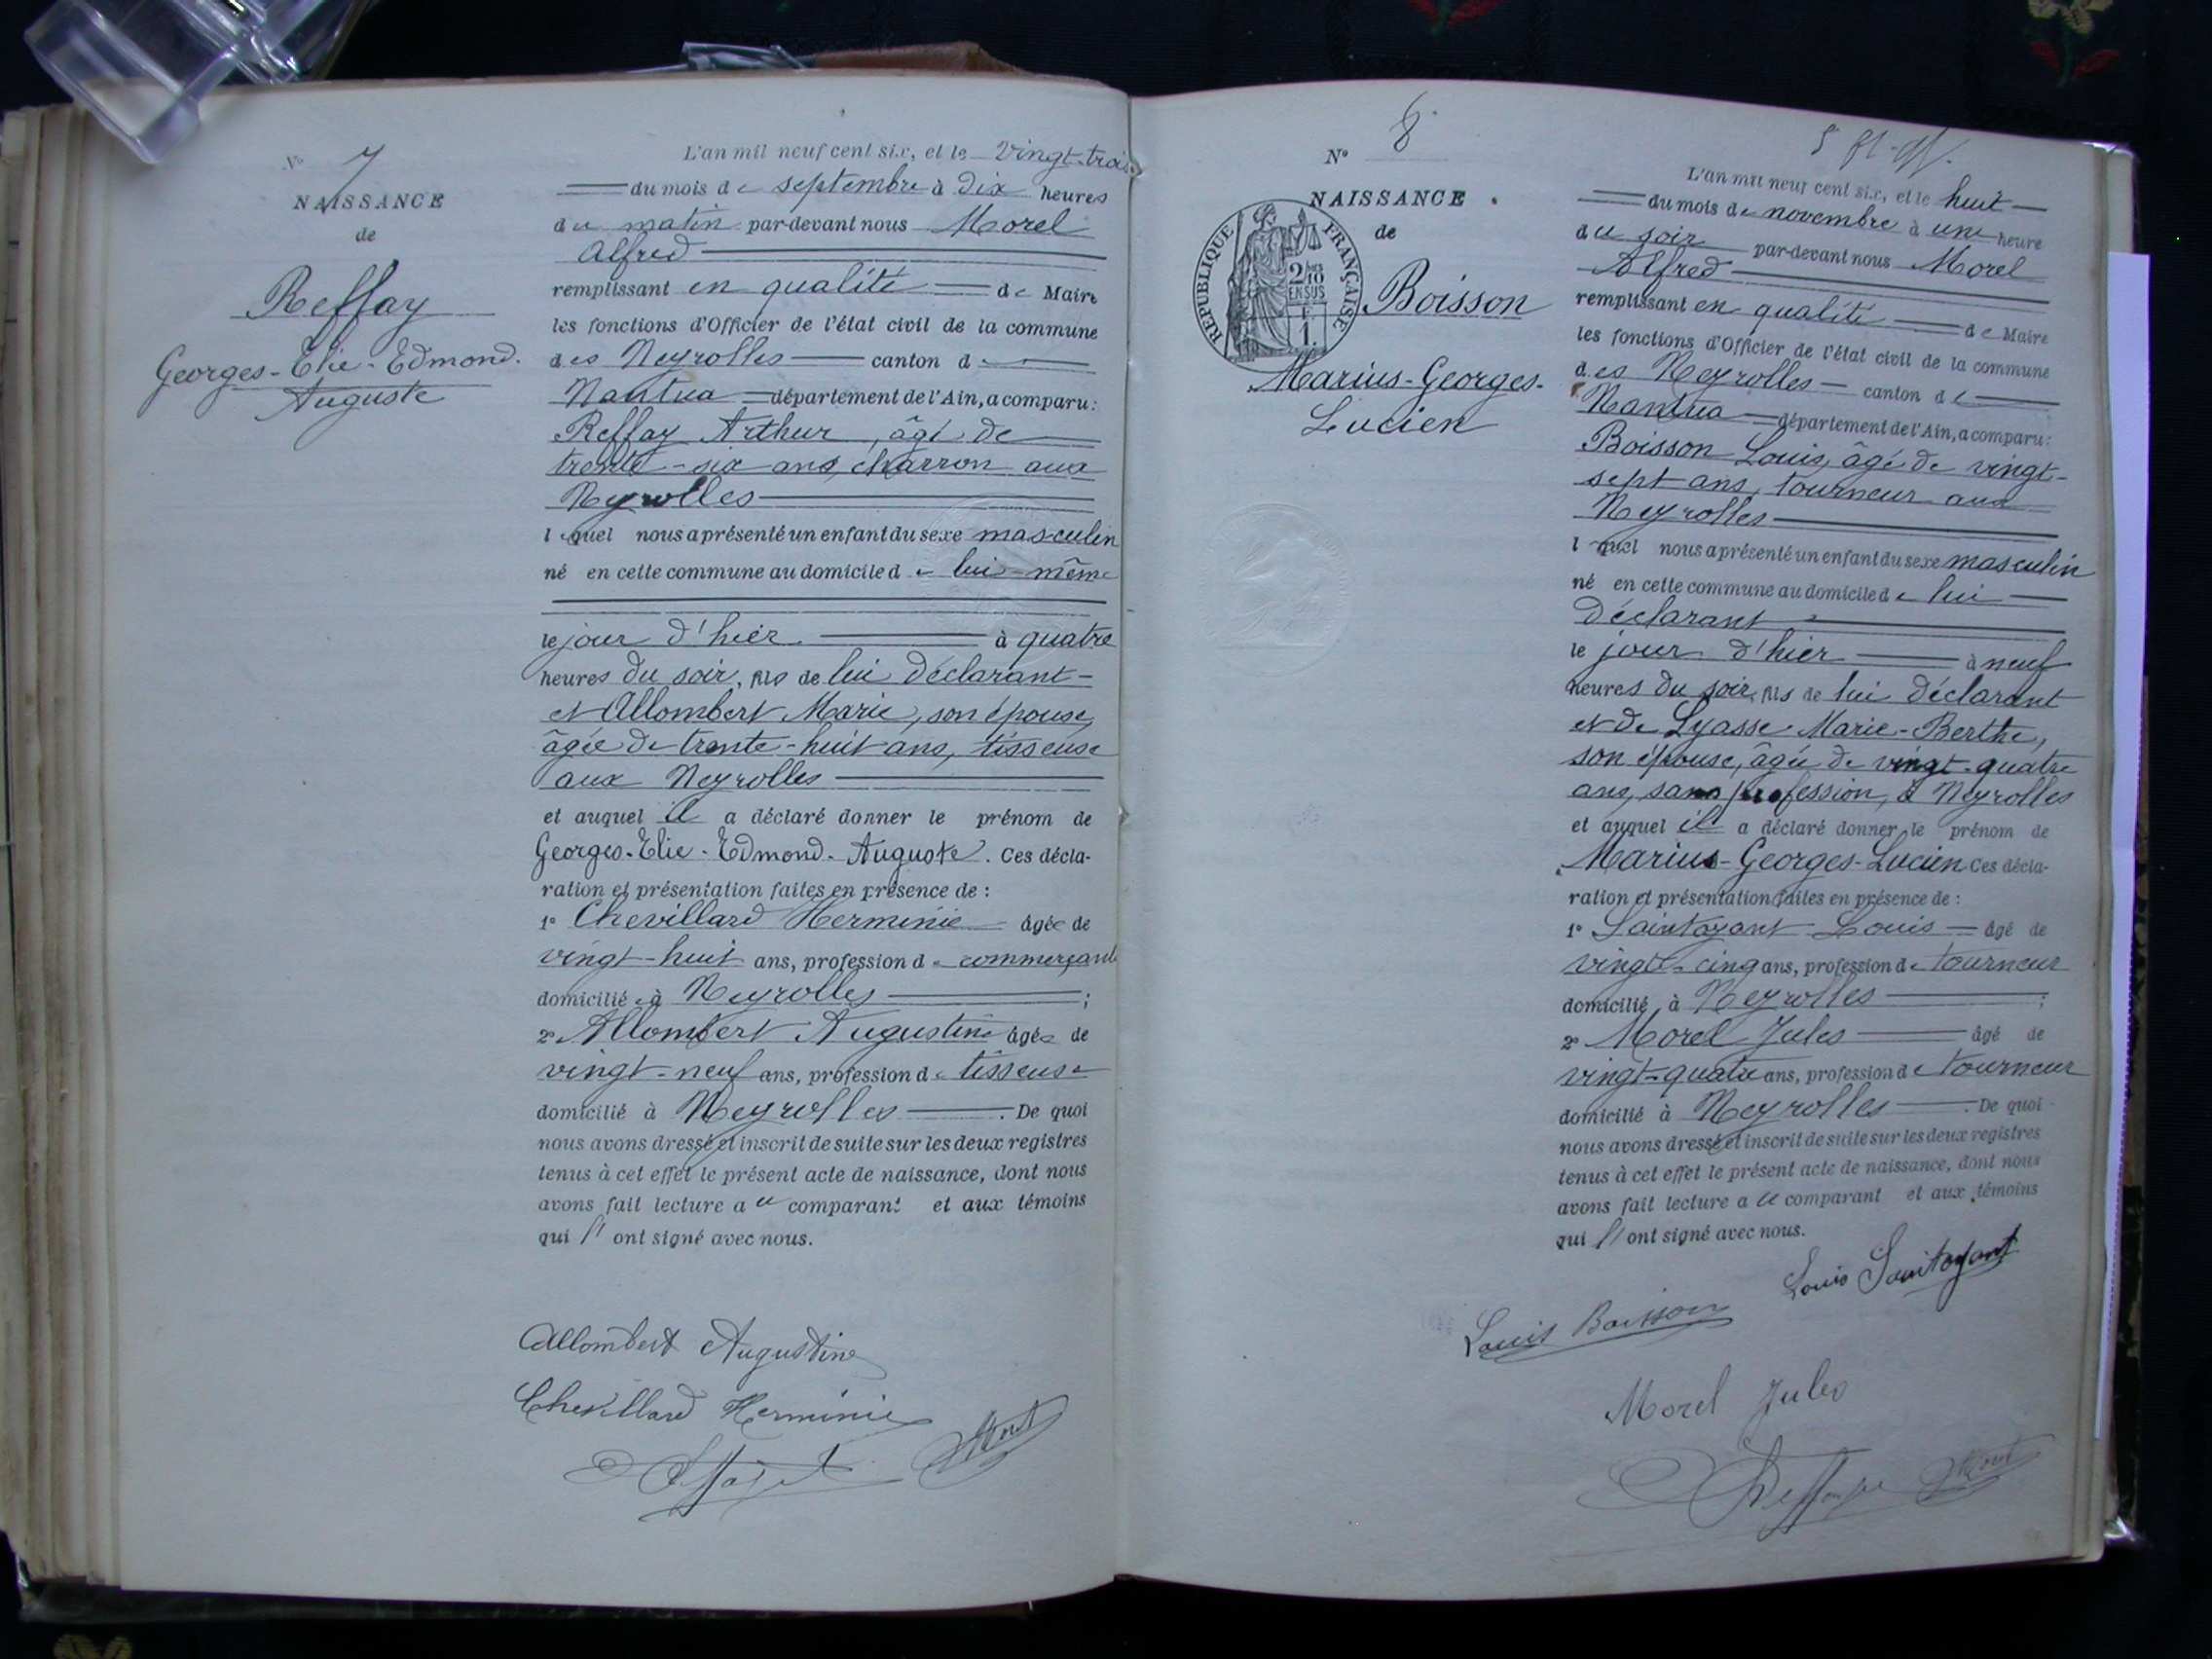 N° 7
NAISSANCE
de
Reffay
Georges-Elie-Edmond.
Auguste
L'an mil neuf cent six, et le vingt-trois
du mois de septembre à dix heures
du matin par-devant nous Morel
Alfred
remplissant en qualité de Maire
les fonctions d'Officier de l'état civil de la commune
des Neyrolles canton de
Nantua département de l'Ain, a comparu :
Reffay Arthur, âgé de
trente-six ans, charron aux
Neyrolles
lequel nous a présenté un enfant du sexe masculin
né en cette commune au domicile de lui-même
le jour d'hier à quatre
heures du soir, fils de lui déclarant
et Allombert Marie, son épouse,
âgée de trente-huit ans, tisseuse
aux Neyrolles
et auquel il a déclaré donner le prénom de
Georges-Elie-Edmond-Auguste. Ces décla-
ration et présentation faites en présence de :
1° Chevillard Herminie âgée de
vingt-huit ans, profession de commerçante
domiciliée à Neyrolles ;
2° Allombert Augustine âgée de
vingt-neuf ans, profession de tisseuse
domicilié à Neyrolles. De quoi
nous avons dressé et inscrit de suite sur les deux registres
tenus à cet effet le présent acte de naissance, dont nous
avons fait lecture au comparant et aux témoins
qui l'ont signé avec nous.
Allombert Augustine
Chevillard Herminie
N° 8
NAISSANCE
de
RÉPUBLIQUE FRANÇAISE
2/10
EN SUS
1
F.
Boisson
Marius-Georges-
Lucien
L'an mil neuf cent six, et le huit
du mois de novembre à une heure
du soir par-devant nous Morel
Alfred
remplissant en qualité de Maire
les fonctions d'Officier de l'état civil de la commune
des Neyrolles canton de
Nantua département de l'Ain, a comparu :
Boisson Louis, âgé de vingt-
sept ans, tourneur aux
Neyrolles
lequel nous a présenté un enfant du sexe masculin
né en cette commune au domicile de lui
déclarant
le jour d'hier à neuf
heures du soir, fils de lui déclarant
et de Lyasse Marie-Berthe,
son épouse, âgée de vingt-quatre
ans, sans profession, à Neyrolles
et auquel il a déclaré donner le prénom de
Marius-Georges-Lucien. Ces décla-
ration et présentation faites en présence de :
1° Saintoyant Louis âgé de
vingt-cinq ans, profession de tourneur
domicilié à Neyrolles ;
2° Morel Jules âgé de
vingt-quatre ans, profession de tourneur
domicilié à Neyrolles. De quoi
nous avons dressé et inscrit de suite sur les deux registres
tenus à cet effet le présent acte de naissance, dont nous
avons fait lecture au comparant et aux témoins
qui l'ont signé avec nous.
Louis Saintoyant
Louis Boisson
Morel Jules